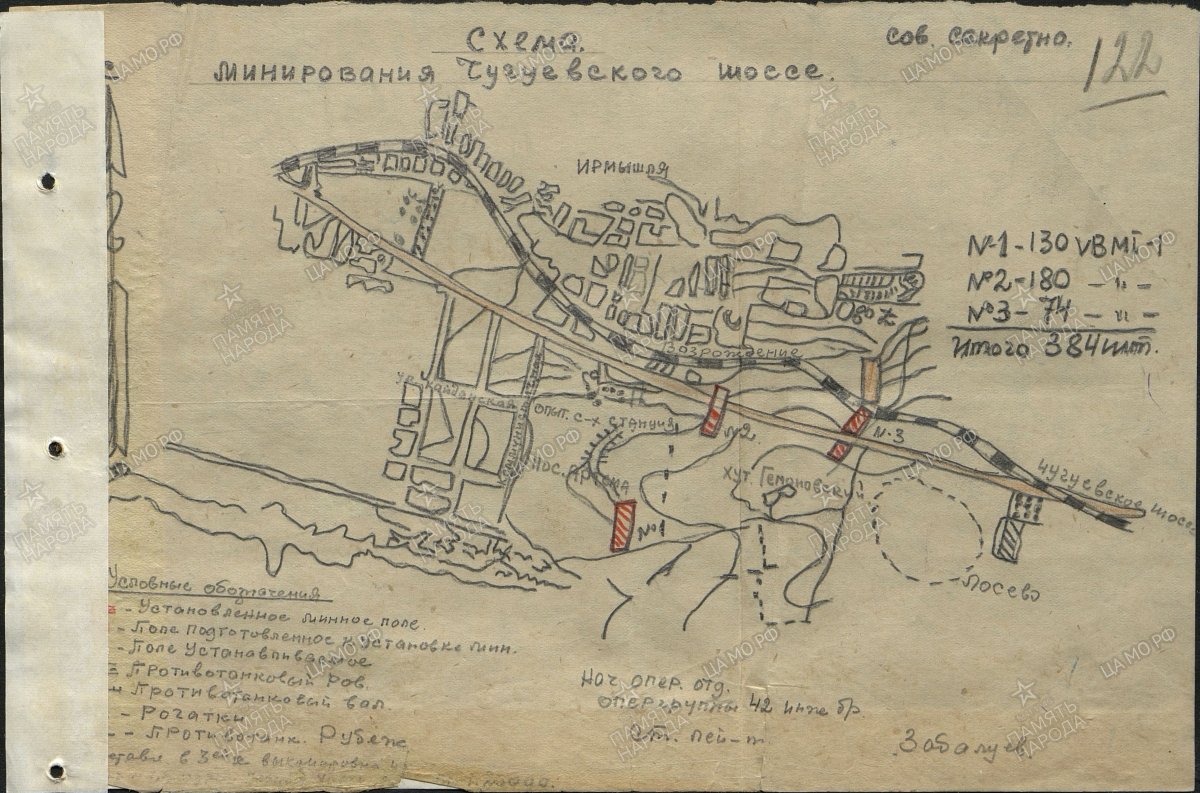 Схема.
сов. секретно.
122
минирования Чугуевского шоссе.
ИРМЫШЛЯ
№1-130 УВМГ-1
№2-180 -"-
№3-74 -"-
Итого 384 шт.
Возрождение
опыт. с-х станция
№2.
№-3
Пос. Артема
хут. Гемоновский
Чугуевское шоссе
№1
Лосево
Условные обозначения
- Установленное минное поле.
- Поле подготовленное к установке мин.
- Поле Устанавливаемое
Противотанковый ров.
- Противотанковый вал
- Рогатки
- Противотанк. Рубеж
Нач. опер. отд.
опергруппы 42 инж бр.
Ст. лей-т.
Забалуев
ПАМЯТЬ НАРОДА
ЦАМО.РФ